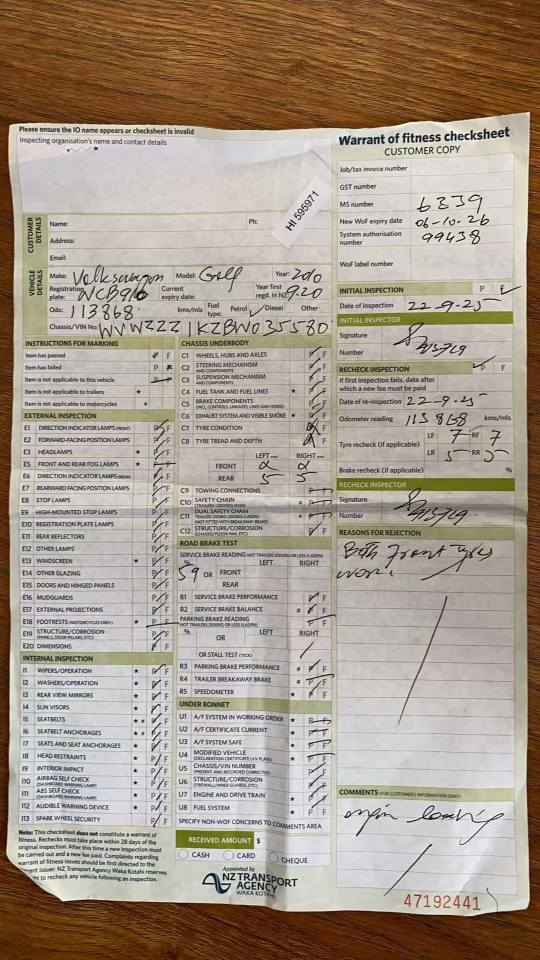 Please ensure the IO name appears or checksheet is invalid
Inspecting organisation's name and contact details
Warrant of fitness checksheet
CUSTOMER COPY
Job/tax invoice number
GST number
MS number 6339
New WoF expiry date 06-10-26
System authorisation number 99438
WoF label number
HI 595971
CUSTOMER DETAILS
Name: Ph:
Address:
Email:
VEHICLE DETAILS
Make: Volkswagon Model: Golf Year: 2010
Registration plate: NCB916 Current expiry date: Year first regd. in NZ 9.20
Odo: 113868 kms/mls Fuel type: Petrol Diesel Other
Chassis/VIN No: WVWZZZ1KZBW035580
INITIAL INSPECTION P F
Date of inspection 22-9-25
INITIAL INSPECTOR
Signature
Number
RECHECK INSPECTION P F
If first inspection fails, date after which a new fee must be paid
Date of re-inspection 22-9-25
Odometer reading 113868 kms/mls
Tyre recheck (if applicable) LF 7 RF 7
LR 5 RR 5
Brake recheck (if applicable) %
RECHECK INSPECTOR
Signature
Number
REASONS FOR REJECTION
Both front tyres
worn.
COMMENTS (FOR CUSTOMER'S INFORMATION ONLY)
47192441
INSTRUCTIONS FOR MARKING
Item has passed P F
Item has failed P F
Item is not applicable to this vehicle P F
Item is not applicable to trailers *
Item is not applicable to motorcycles #
EXTERNAL INSPECTION
E1 DIRECTION INDICATOR LAMPS (FRONT) P F
E2 FORWARD-FACING POSITION LAMPS P F
E3 HEADLAMPS * P F
E5 FRONT AND REAR FOG LAMPS * P F
E6 DIRECTION INDICATOR LAMPS (REAR) P F
E7 REARWARD FACING POSITION LAMPS P F
E8 STOP LAMPS P F
E9 HIGH-MOUNTED STOP LAMPS P F
E10 REGISTRATION PLATE LAMPS P F
E11 REAR REFLECTORS P F
E12 OTHER LAMPS P F
E13 WINDSCREEN * P F
E14 OTHER GLAZING P F
E15 DOORS AND HINGED PANELS P F
E16 MUDGUARDS P F
E17 EXTERNAL PROJECTIONS P F
E18 FOOTRESTS (MOTORCYCLES ONLY) * P F
E19 STRUCTURE/CORROSION (PANELS, DOOR PILLARS, ETC) P F
E20 DIMENSIONS P F
INTERNAL INSPECTION
I1 WIPERS/OPERATION * P F
I2 WASHERS/OPERATION * P F
I3 REAR VIEW MIRRORS * P F
I4 SUN VISORS * P F
I5 SEATBELTS P F
I6 SEATBELT ANCHORAGES P F
I7 SEATS AND SEAT ANCHORAGES * P F
I8 HEAD RESTRAINTS P F
I9 INTERIOR IMPACT P F
I10 AIRBAG SELF CHECK (DASHBOARD WARNING LAMP) P F
I11 ABS SELF CHECK (DASHBOARD WARNING LAMP) P F
I12 AUDIBLE WARNING DEVICE * P F
I13 SPARE WHEEL SECURITY P F
Note: This checksheet does not constitute a warrant of fitness. Rechecks must take place within 28 days of the original inspection. After this time a new inspection must be carried out and a new fee paid. Complaints regarding warrant of fitness issues should be first directed to the issuer. NZ Transport Agency Waka Kotahi reserves to recheck any vehicle following an inspection.
CHASSIS UNDERBODY
C1 WHEELS, HUBS AND AXLES P F
C2 STEERING MECHANISM AND COMPONENTS P F
C3 SUSPENSION MECHANISM AND COMPONENTS P F
C4 FUEL TANK AND FUEL LINES * P F
C5 BRAKE COMPONENTS (INCL. CONTROLS, LINKAGES, LINES AND HOSES) P F
C6 EXHAUST SYSTEM AND VISIBLE SMOKE * P F
C7 TYRE CONDITION P F
C8 TYRE TREAD AND DEPTH P F
LEFT RIGHT
FRONT
REAR 5 5
C9 TOWING CONNECTIONS P F
C10 SAFETY CHAIN # P F
C11 DUAL SAFETY CHAIN # P F
C12 STRUCTURE/CORROSION (CHASSIS/FLOOR PAN, ETC) P F
ROAD BRAKE TEST
SERVICE BRAKE READING LEFT RIGHT
59 OR FRONT
REAR
R1 SERVICE BRAKE PERFORMANCE P F
R2 SERVICE BRAKE BALANCE # P F
PARKING BRAKE READING P F
% LEFT RIGHT
OR
OR STALL TEST (TICK)
R3 PARKING BRAKE PERFORMANCE # P F
R4 TRAILER BREAKAWAY BRAKE # P F
R5 SPEEDOMETER * P F
UNDER BONNET
U1 A/F SYSTEM IN WORKING ORDER * P F
U2 A/F CERTIFICATE CURRENT * P F
U3 A/F SYSTEM SAFE * P F
U4 MODIFIED VEHICLE P F
U5 CHASSIS/VIN NUMBER (PRESENT AND RECORDED CORRECTLY) P F
U6 STRUCTURE/CORROSION P F
U7 ENGINE AND DRIVE TRAIN * P F
U8 FUEL SYSTEM * P F
SPECIFY NON-WOF CONCERNS TO COMMENTS AREA
RECEIVED AMOUNT $
CASH CARD CHEQUE
Appointed by
NZ TRANSPORT
AGENCY
WAKA KOTAHI